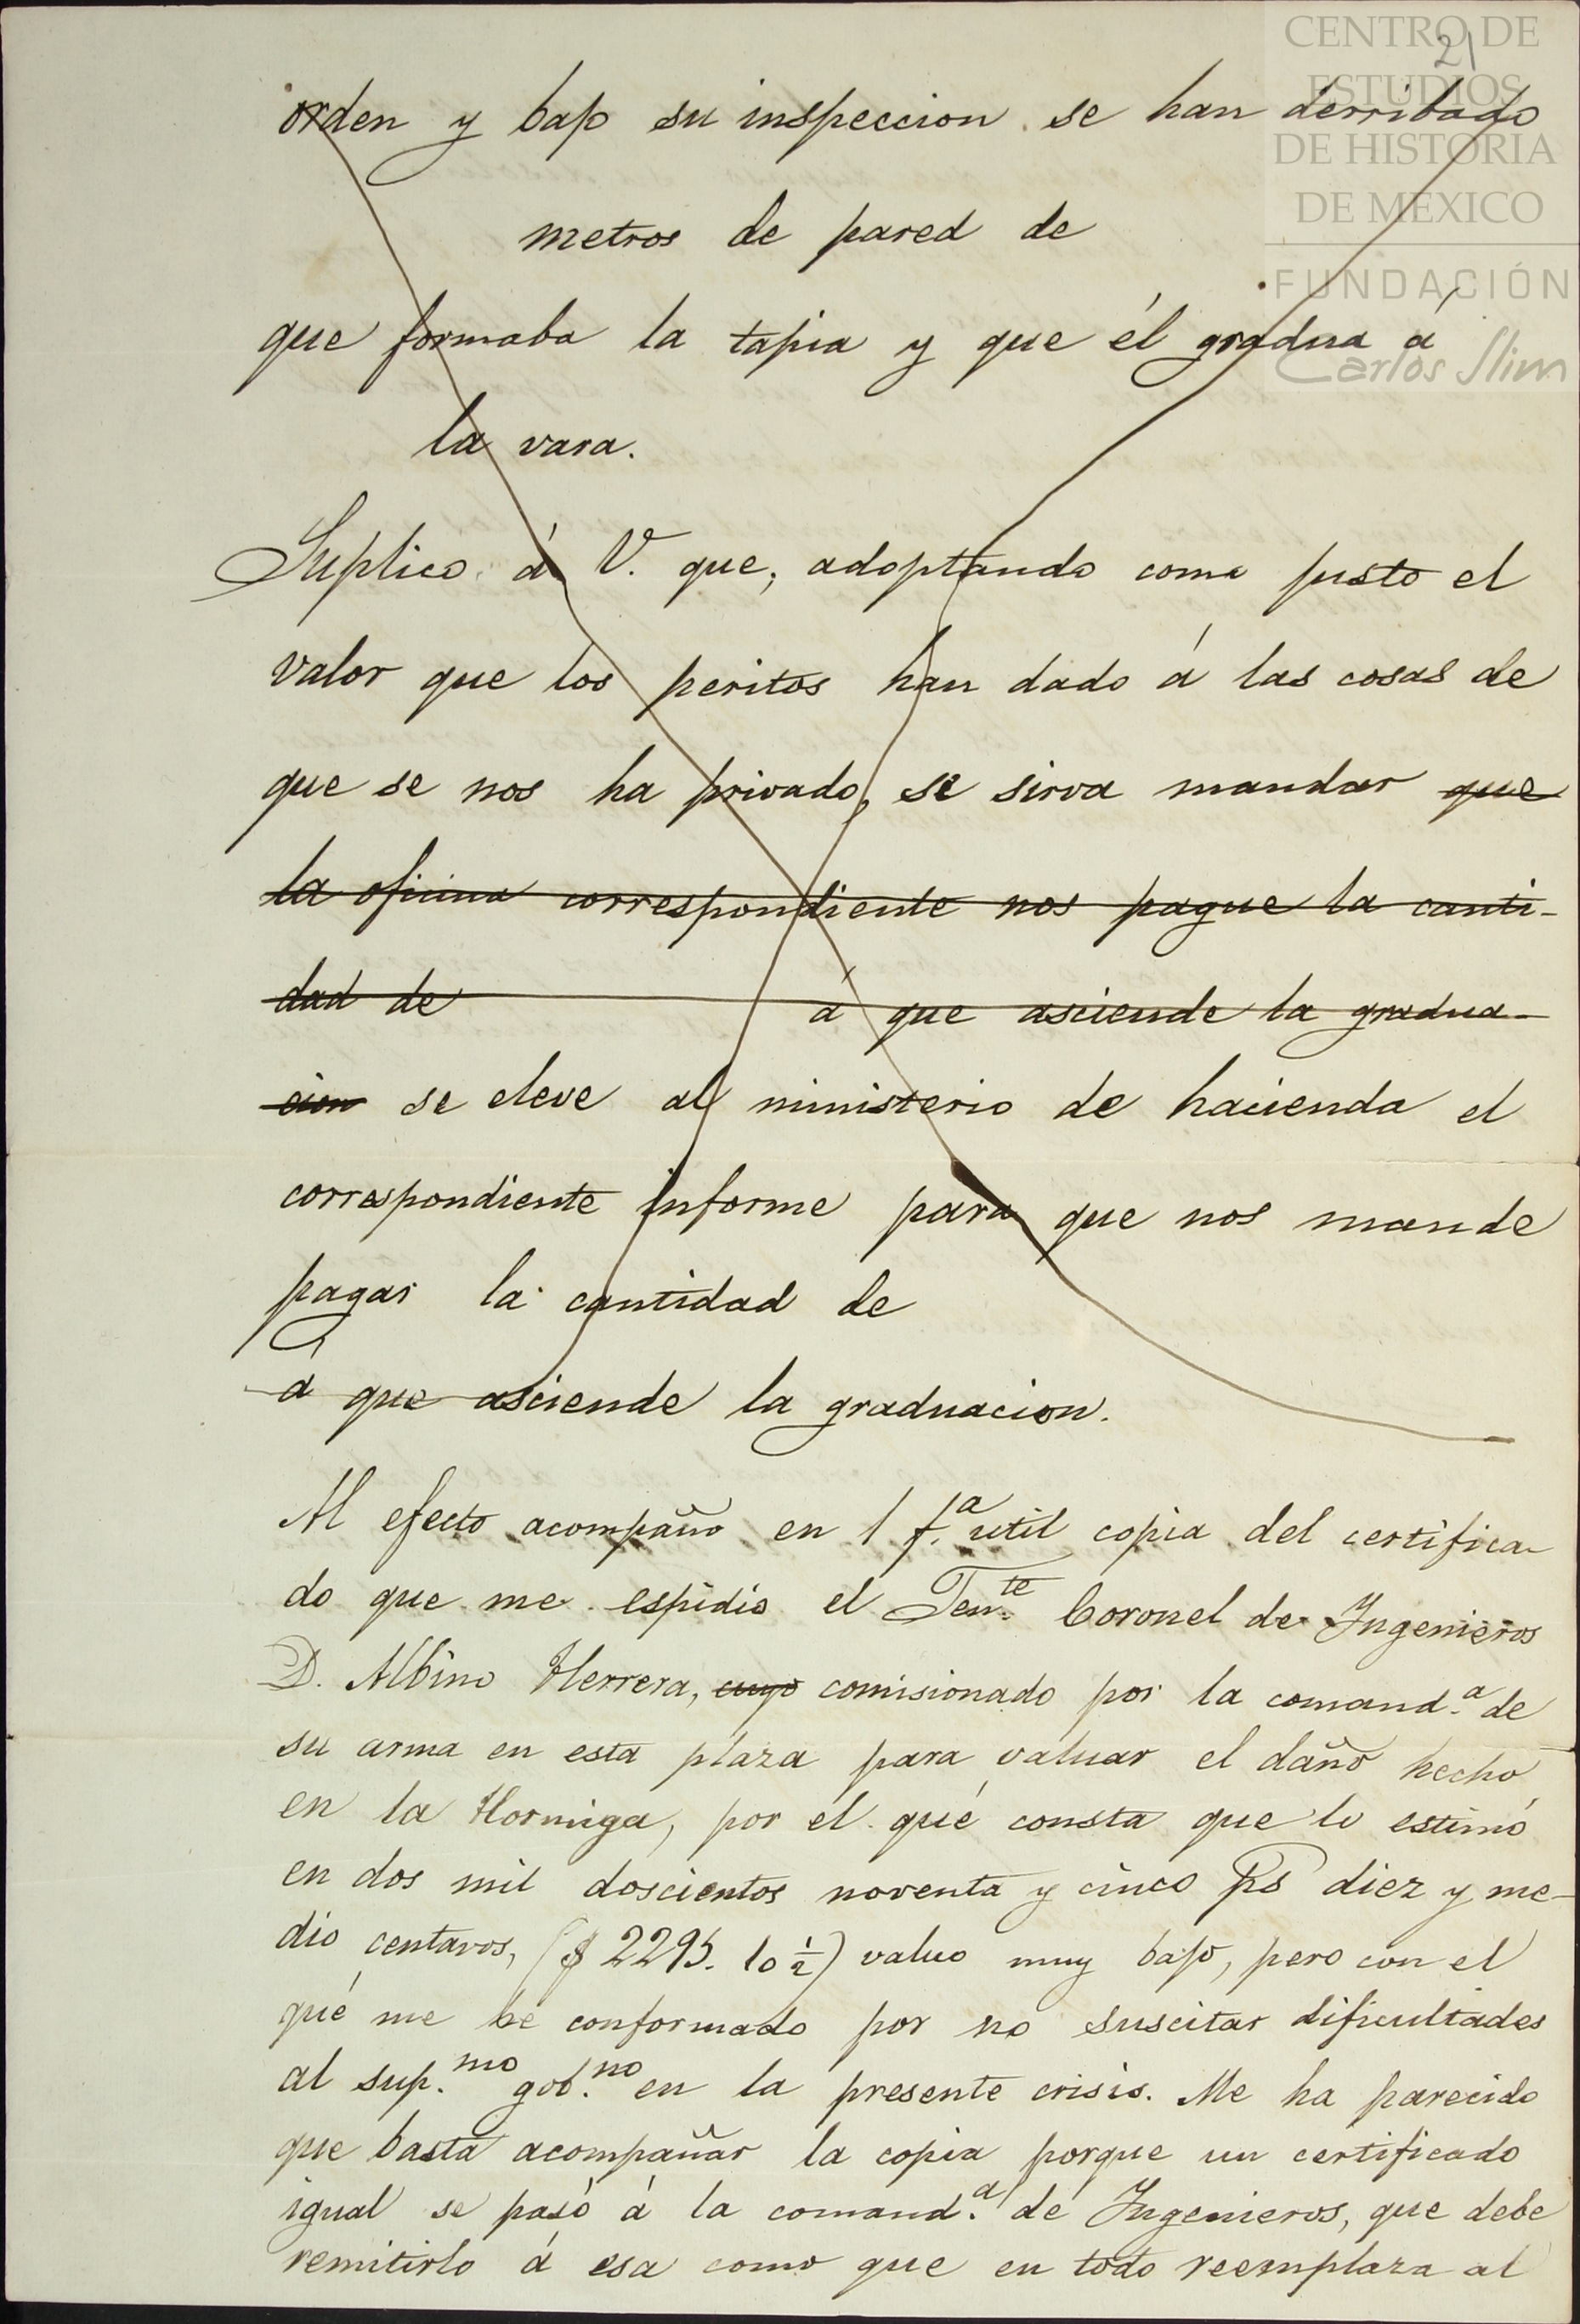 CENTRO DE
ESTUDIOS
DE HISTORIA
DE MEXICO
FUNDACIÓN
Carlos Slim
21
orden y bajo su inspeccion se han derribado
metros de pared de
que formaba la tapia y que él gradua á
la vara.
Suplico á V. que, adoptando como justo el
valor que los peritos han dado á las cosas de
que se nos ha privado, se sirva mandar que
la oficina correspondiente nos pague la canti-
dad de á que asciende la gradua-
cion se eleve al ministerio de hacienda el
correspondiente informe para que nos mande
pagar la cantidad de
á que asciende la graduacion.
Al efecto acompaño en 1 f.a util copia del certifica-
do que me espidió el Ten.te Coronel de Ingenieros
D. Albino Herrera, cuyo comisionado por la comand.a de
su arma en esta plaza para valuar el daño hecho
en la Hormiga, por el qué consta que lo estimó
en dos mil doscientos noventa y cinco ps diez y me-
dio centavos, ($ 2295. 10 1/2) valuo muy bajo, pero con el
qué me he conformado por no suscitar dificultades
al sup.mo gob.no en la presente crisis. Me ha parecido
que basta acompañar la copia porque un certificado
igual se pasó á la comand.a de Ingenieros, que debe
remitirlo á esa como que en todo reemplaza al